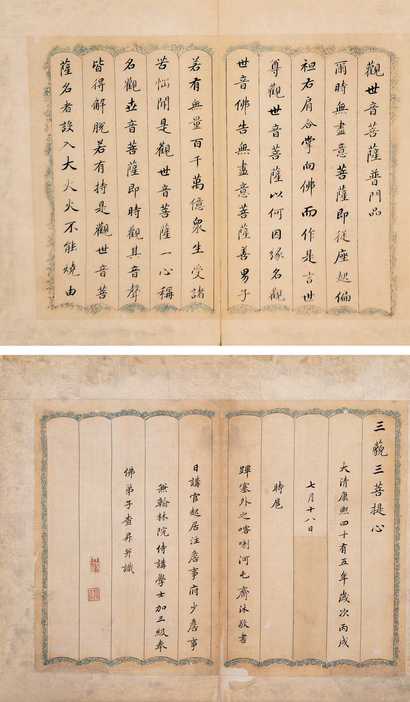 觀世音菩薩普門品
爾時無盡意菩薩即從座起偏
袒右肩合掌向佛而作是言世
尊觀世音菩薩以何因緣名觀
世音佛告無盡意菩薩善男子
若有無量百千萬億衆生受諸
苦惱聞是觀世音菩薩一心稱
名觀世音菩薩即時觀其音聲
皆得解脫若有持是觀世音菩
薩名者設入大火火不能燒由
三藐三菩提心
大清康熙四十有五年歲次丙戌
七月十八日
時扈
蹕塞外之喀喇河屯齋沐敬書
日講官起居注詹事府少詹事
兼翰林院侍講學士加三級奉
佛弟子查昇并識